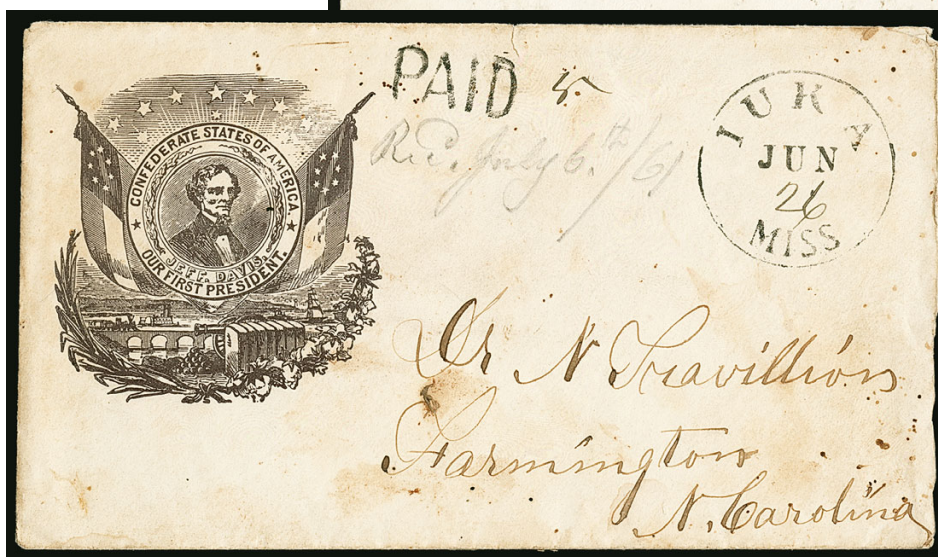 CONFEDERATE STATES OF AMERICA.
JEFF. DAVIS.
OUR FIRST PRESIDENT.
PAID 5
Rec. July 6th/61
IUKA
JUN
26
MISS
Dr N Travillion
Farmington
N. Carolina